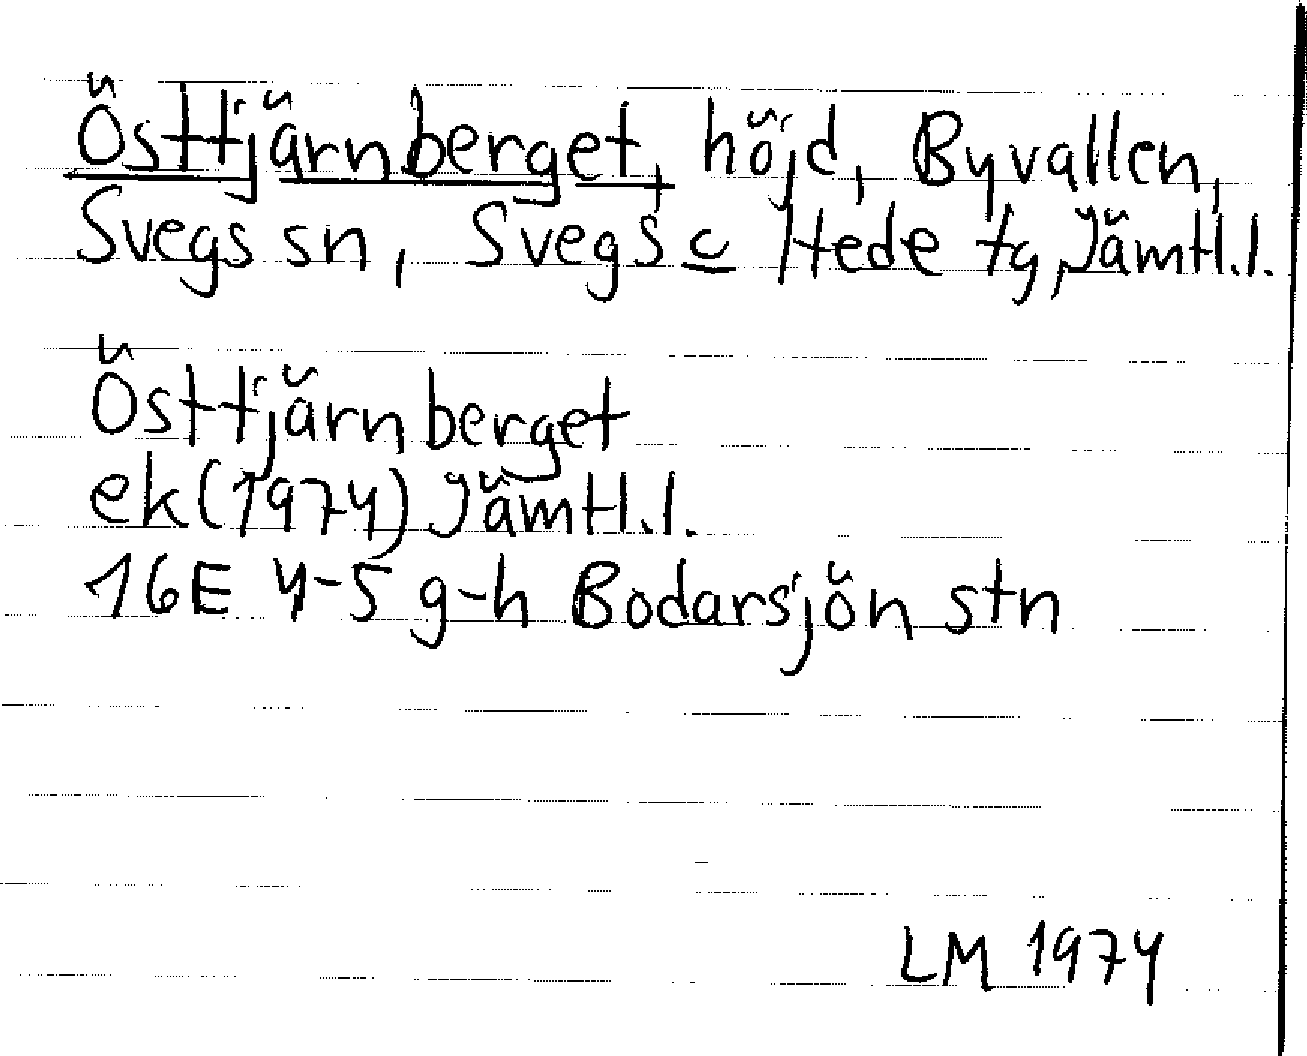 Östtjärnberget, höjd, Byvallen,
Svegs sn, Svegs o Hede tg, Jämtl.l.
Östtjärnberget
ek (1974) Jämtl.l.
16E 4-5 g-h Bodarsjön stn
LM 1974